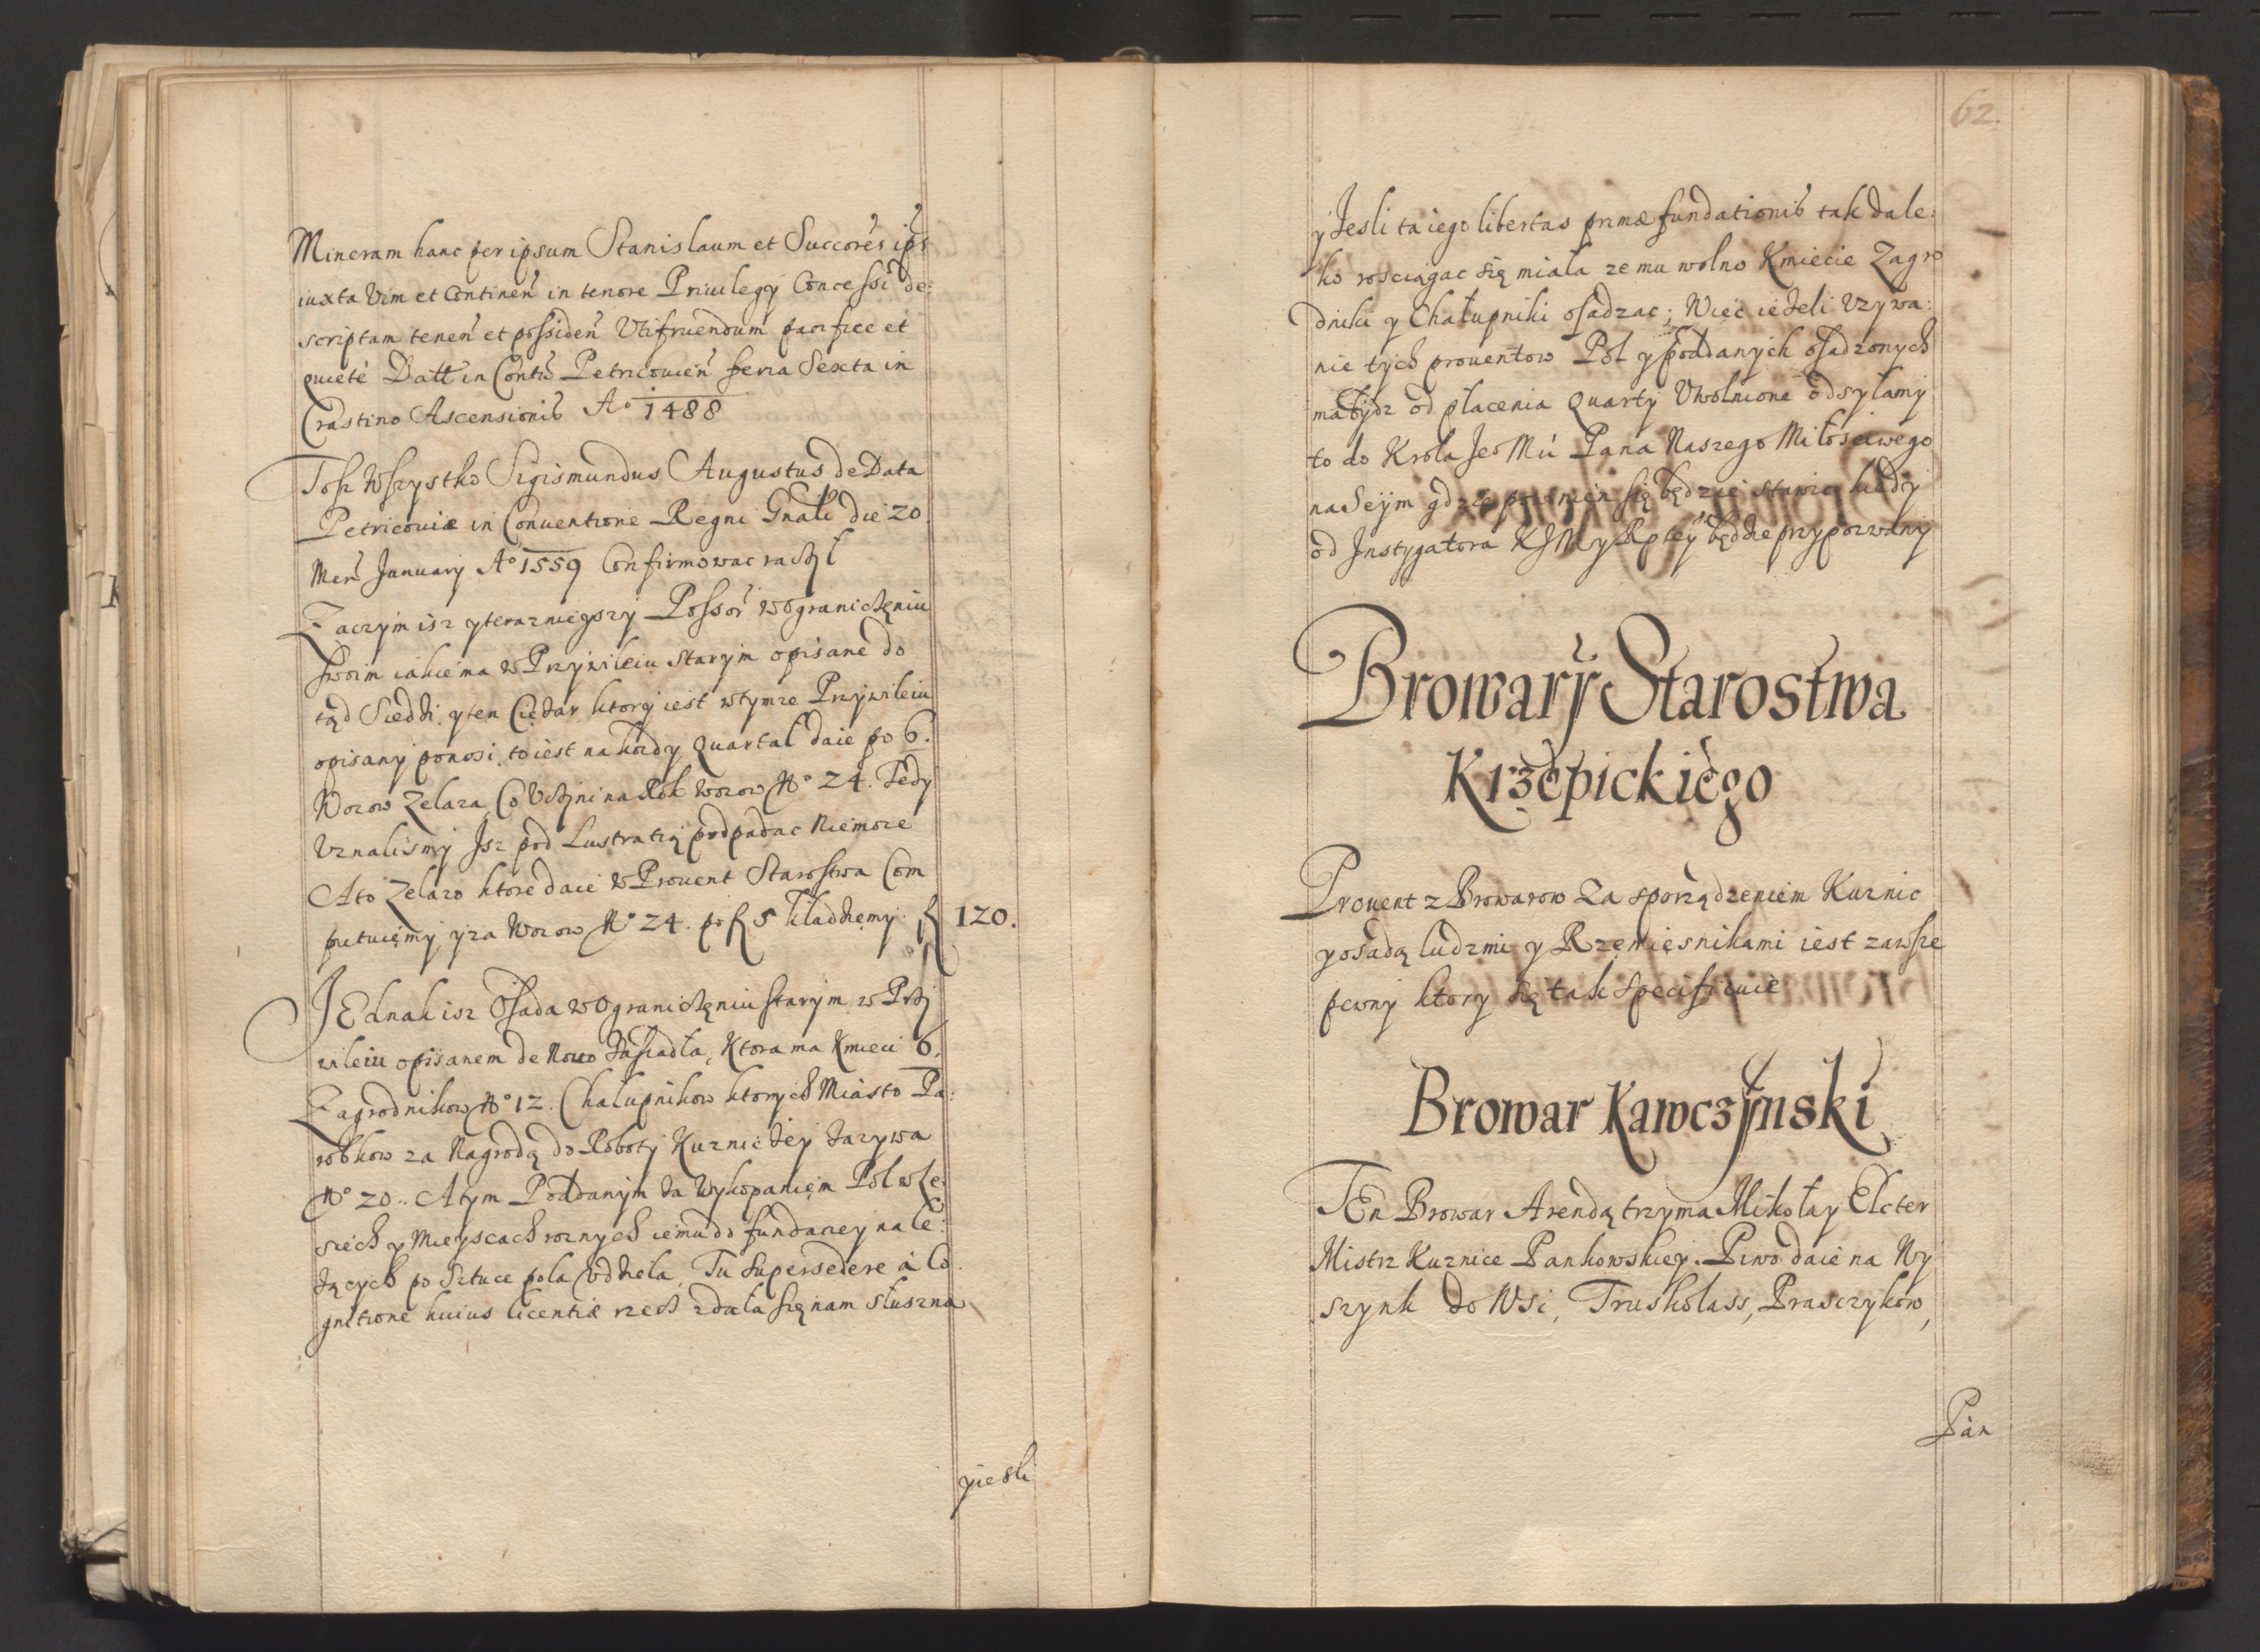 Mineram hanc per ipsum Stanislaum et Succores ips
iuxta Vim et Continen in tenore Priuilegÿ Concessi de:
scriptam tenen et possiden Vtifruendum pacifice et
quietè Datt in Contu Petricouien feria Sexta in
Crastino Ascensionis A° 1488
Tosz Wszystko Sigismundus Augustus de Data
Petricouiæ in Conuentione Regni Gnali die 20
Men January A° 1559 Confirmowac raczÿł
Zaczym isz y terazniegszy Possor w Ograniczęniu
swoim iakie ma w Przÿwileiu starÿm opisane do
tąd Siedzi, y ten Ciężar ktorÿ iest w tymze Przÿwileiu
opisanÿ ponosi, to iest na kozdÿ Quartał daie po 6.
Wozow Zelaza, Co Vczÿni na Rok wozow N° 24. Tedÿ
Vznalismÿ Jsz pod Lustratią podpadac Niemoze
A to Zelazo ktore daie w Prouent Starostwa Com
putuięmÿ ÿ za Wozow N° 24. po fl 5 kładzięmÿ. fl 120.
JEdnak isz Osada w Ograniczęniu starÿm w Przÿ
wileiu opisanem de Nouo Zasiadła, Ktora ma Kmieci 6.
Zagrodnikow N° 12. Chałupnikow ktorÿch Miasto Pa:
robkow za Nagrodą do Robotÿ Kuznic zeÿ zazywa
N° 20.. A tym Poddanÿm za Wykopanięm Pol w Le:
siech y Mieÿscach roznÿch iemu do fundacieÿ nale:
żącÿch po Sztuce pola Vdziela, Tu Supersedere à Co
gnitione huius licentiæ rzecz zdała się nam słuszna
y iesli
62.
ÿ Jesli ta iego libertas primæ fundationis tak dale:
ko rosciągac się miała ze mu wolno Kmiecie Zagro
dniki y Chałupniki osadzac; Więc ieżeli Vzÿwa:
nie tÿch prouentow Pol y poddanych osadzonych
ma bÿdz od płacenia Quartÿ Vwolnione odsÿłamÿ
to do Krola Jeo Mci Pana Naszego Miłosciwego
na Seÿm gdzie powinien się będzie stawic kiedÿ
od Instÿgatora KJM y Rptey będzie przypozwanÿ
Browarÿ Starostwa
Krzepickiego
Prouent z Browarow Za sporządzeniem Kuznic
y osadą ludzmi y Rzemięsnikami iest zawsze
pewnÿ ktorÿ się tak Specificuie
Browar Kawcsÿnski
TEn Browar Arendą trzyma Mikołay Elcter
Mistrz Kuznice Pankowskieÿ. Piwo daie na Wÿ
szÿnk do Wsi, Truskolass, Prasczykow,
Pan